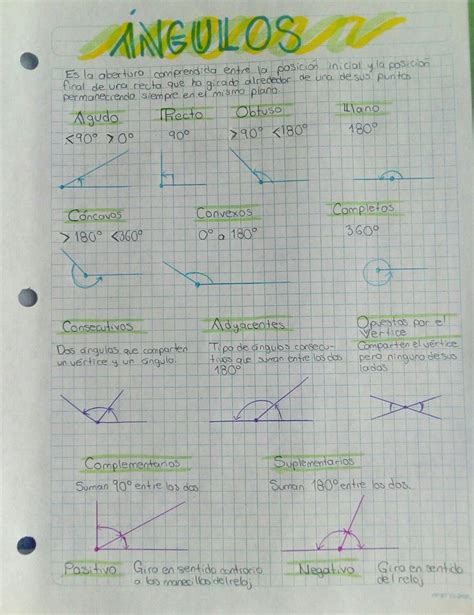 ÁNGULOS
Es la abertura comprendida entre la posición inicial y la posición
final de una recta que ha girado alrededor de una de sus puntos
permaneciendo siempre en el mismo plano.
Agudo Recto Obtuso Llano
<90° >0° 90° >90° <180° 180°
Cóncavos Convexos Completos
>180° <360° 0° a 180° 360°
Consecutivos Adyacentes Opuestos por el
vértice
Dos ángulos que comparten
un vértice y un ángulo.
Tipo de ángulos consecu-
tivos que suman entre los dos
180°
Comparten el vértice
pero ninguno de sus
lados
Complementarios Suplementarios
Suman 90° entre los dos Suman 180° entre los dos.
Positivo Gira en sentido contrario
a las manecillas del reloj
Negativo Gira en sentido
del reloj